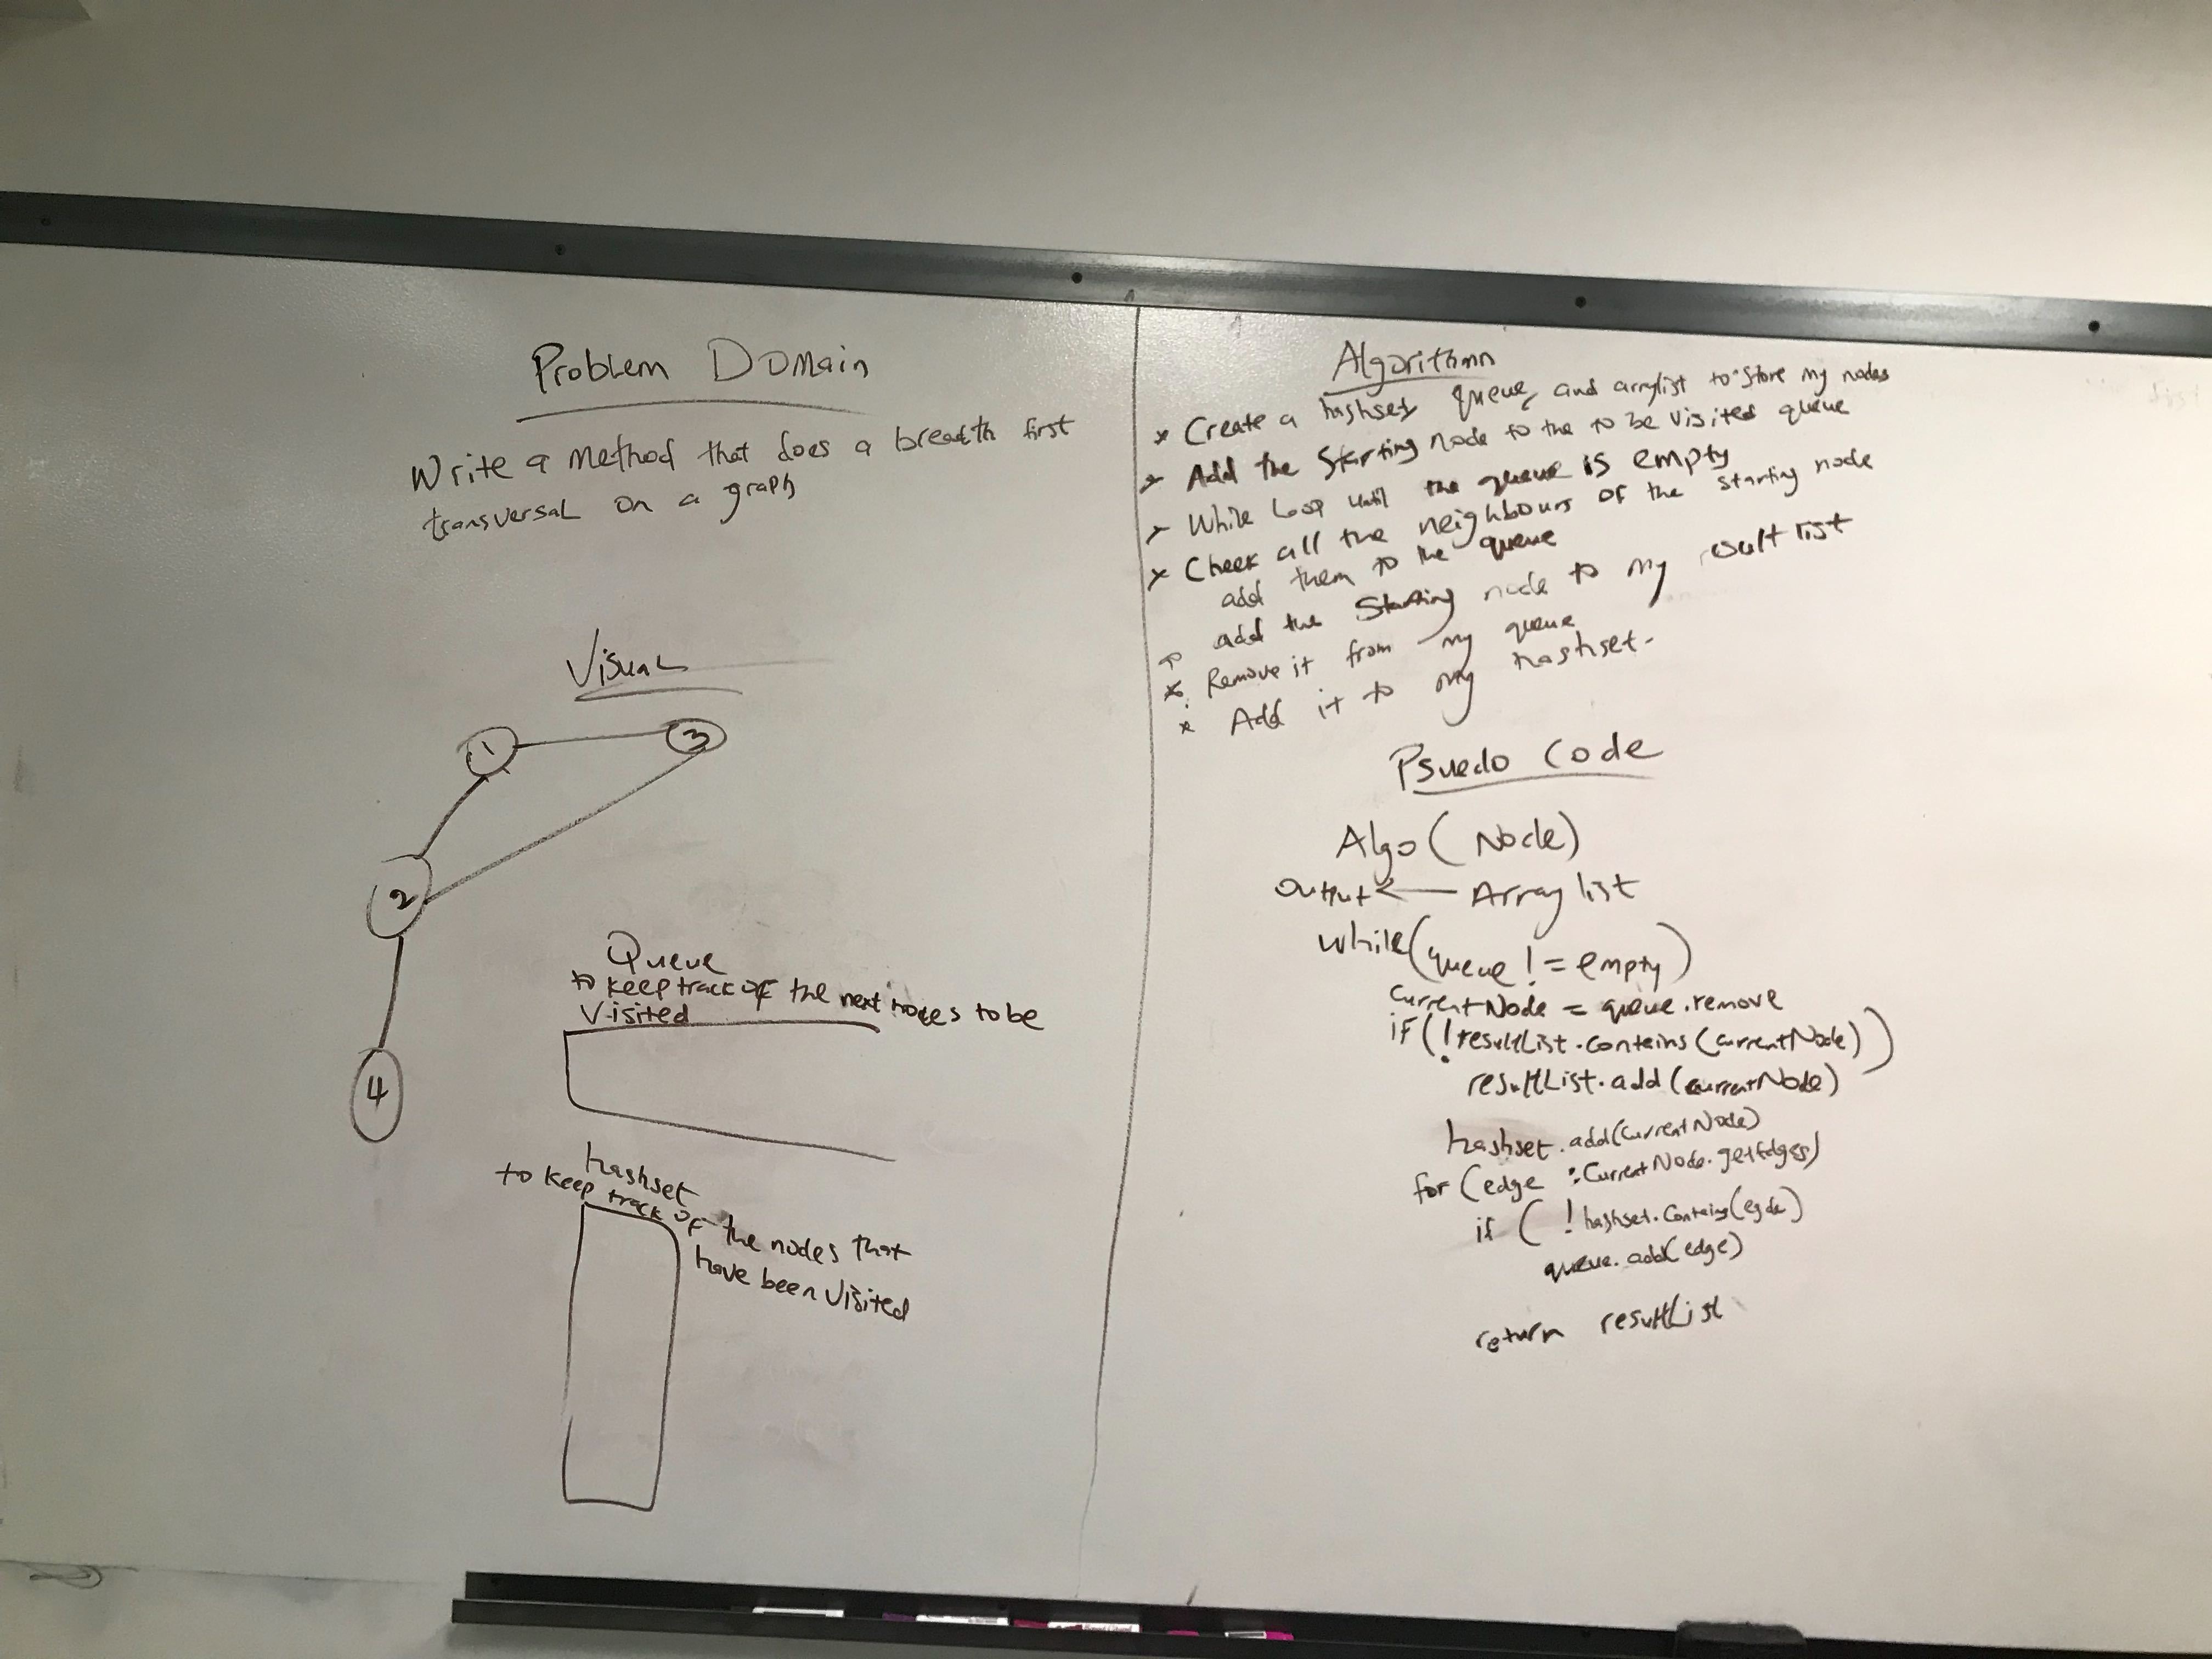 Problem Domain
Write a method that does a breadth first
transversal on a graph
Visual
1
3
2
4
Queue
to keep track of the next nodes to be
visited
hashset
to keep track of the nodes that
have been visited
Algorithmn
* Create a hashset, queue, and arraylist to store my nodes
* Add the starting node to the to be visited queue
* While loop until the queue is empty
* Check all the neighbours of the starting node
add them to the queue
* add the starting node to my result list
* Remove it from my queue
* Add it to my hashset.
Psuedo Code
Algo ( Node)
Output <— Array list
while(queue != empty)
currentNode = queue.remove
if (!resultList.contains(currentNode))
resultList.add(currentNode)
hashset.add(currentNode)
for (edge : CurrentNode.getEdges)
if ( ! hashset.contains(egde)
queue.add(edge)
return resultList